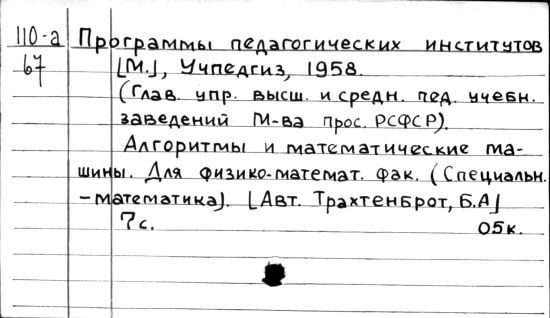 110-а Программы педагогических институтов
67 [М.], Учпедгиз, 1958.
(Глав. упр. высш. и средн. пед. учебн.
заведений М-ва прос. РСФСР).
Алгоритмы и математические ма-
шины. Для физико-математ. фак. (Специальн.
-математика). [Авт. Трахтенброт, Б.А]
7с. 05к.